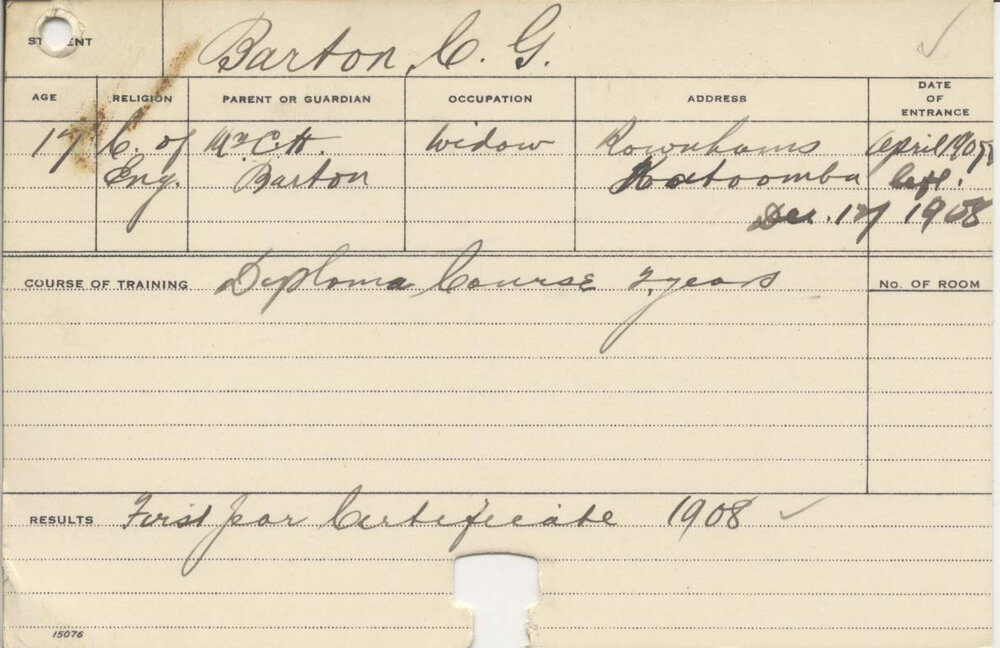 STUDENT Barton, C. G.
AGE RELIGION PARENT OR GUARDIAN OCCUPATION ADDRESS DATE OF ENTRANCE
17 C. of Mrs C. H. Widow Rownhams April 1907
Eng. Barton Katoomba left.
Dec. 17 1908
COURSE OF TRAINING Diploma Course 2 years No. OF ROOM
RESULTS First year Certificate 1908 ✓
15076